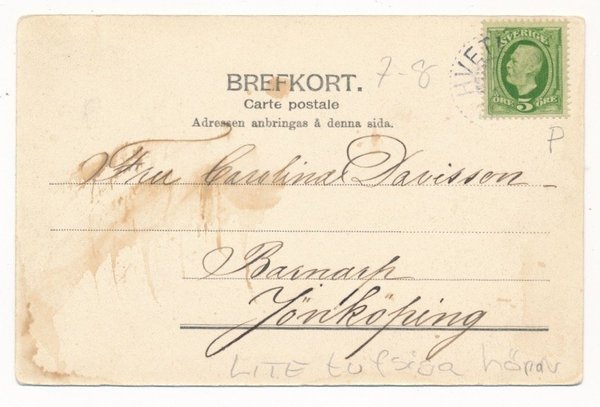 SVERIGE
HVET
ÖRE 5 ÖRE
7-8
P
BREFKORT.
Carte postale
Adressen anbringas å denna sida.
Fru Carolina Davisson
Barnarp
Jönköping
LITE